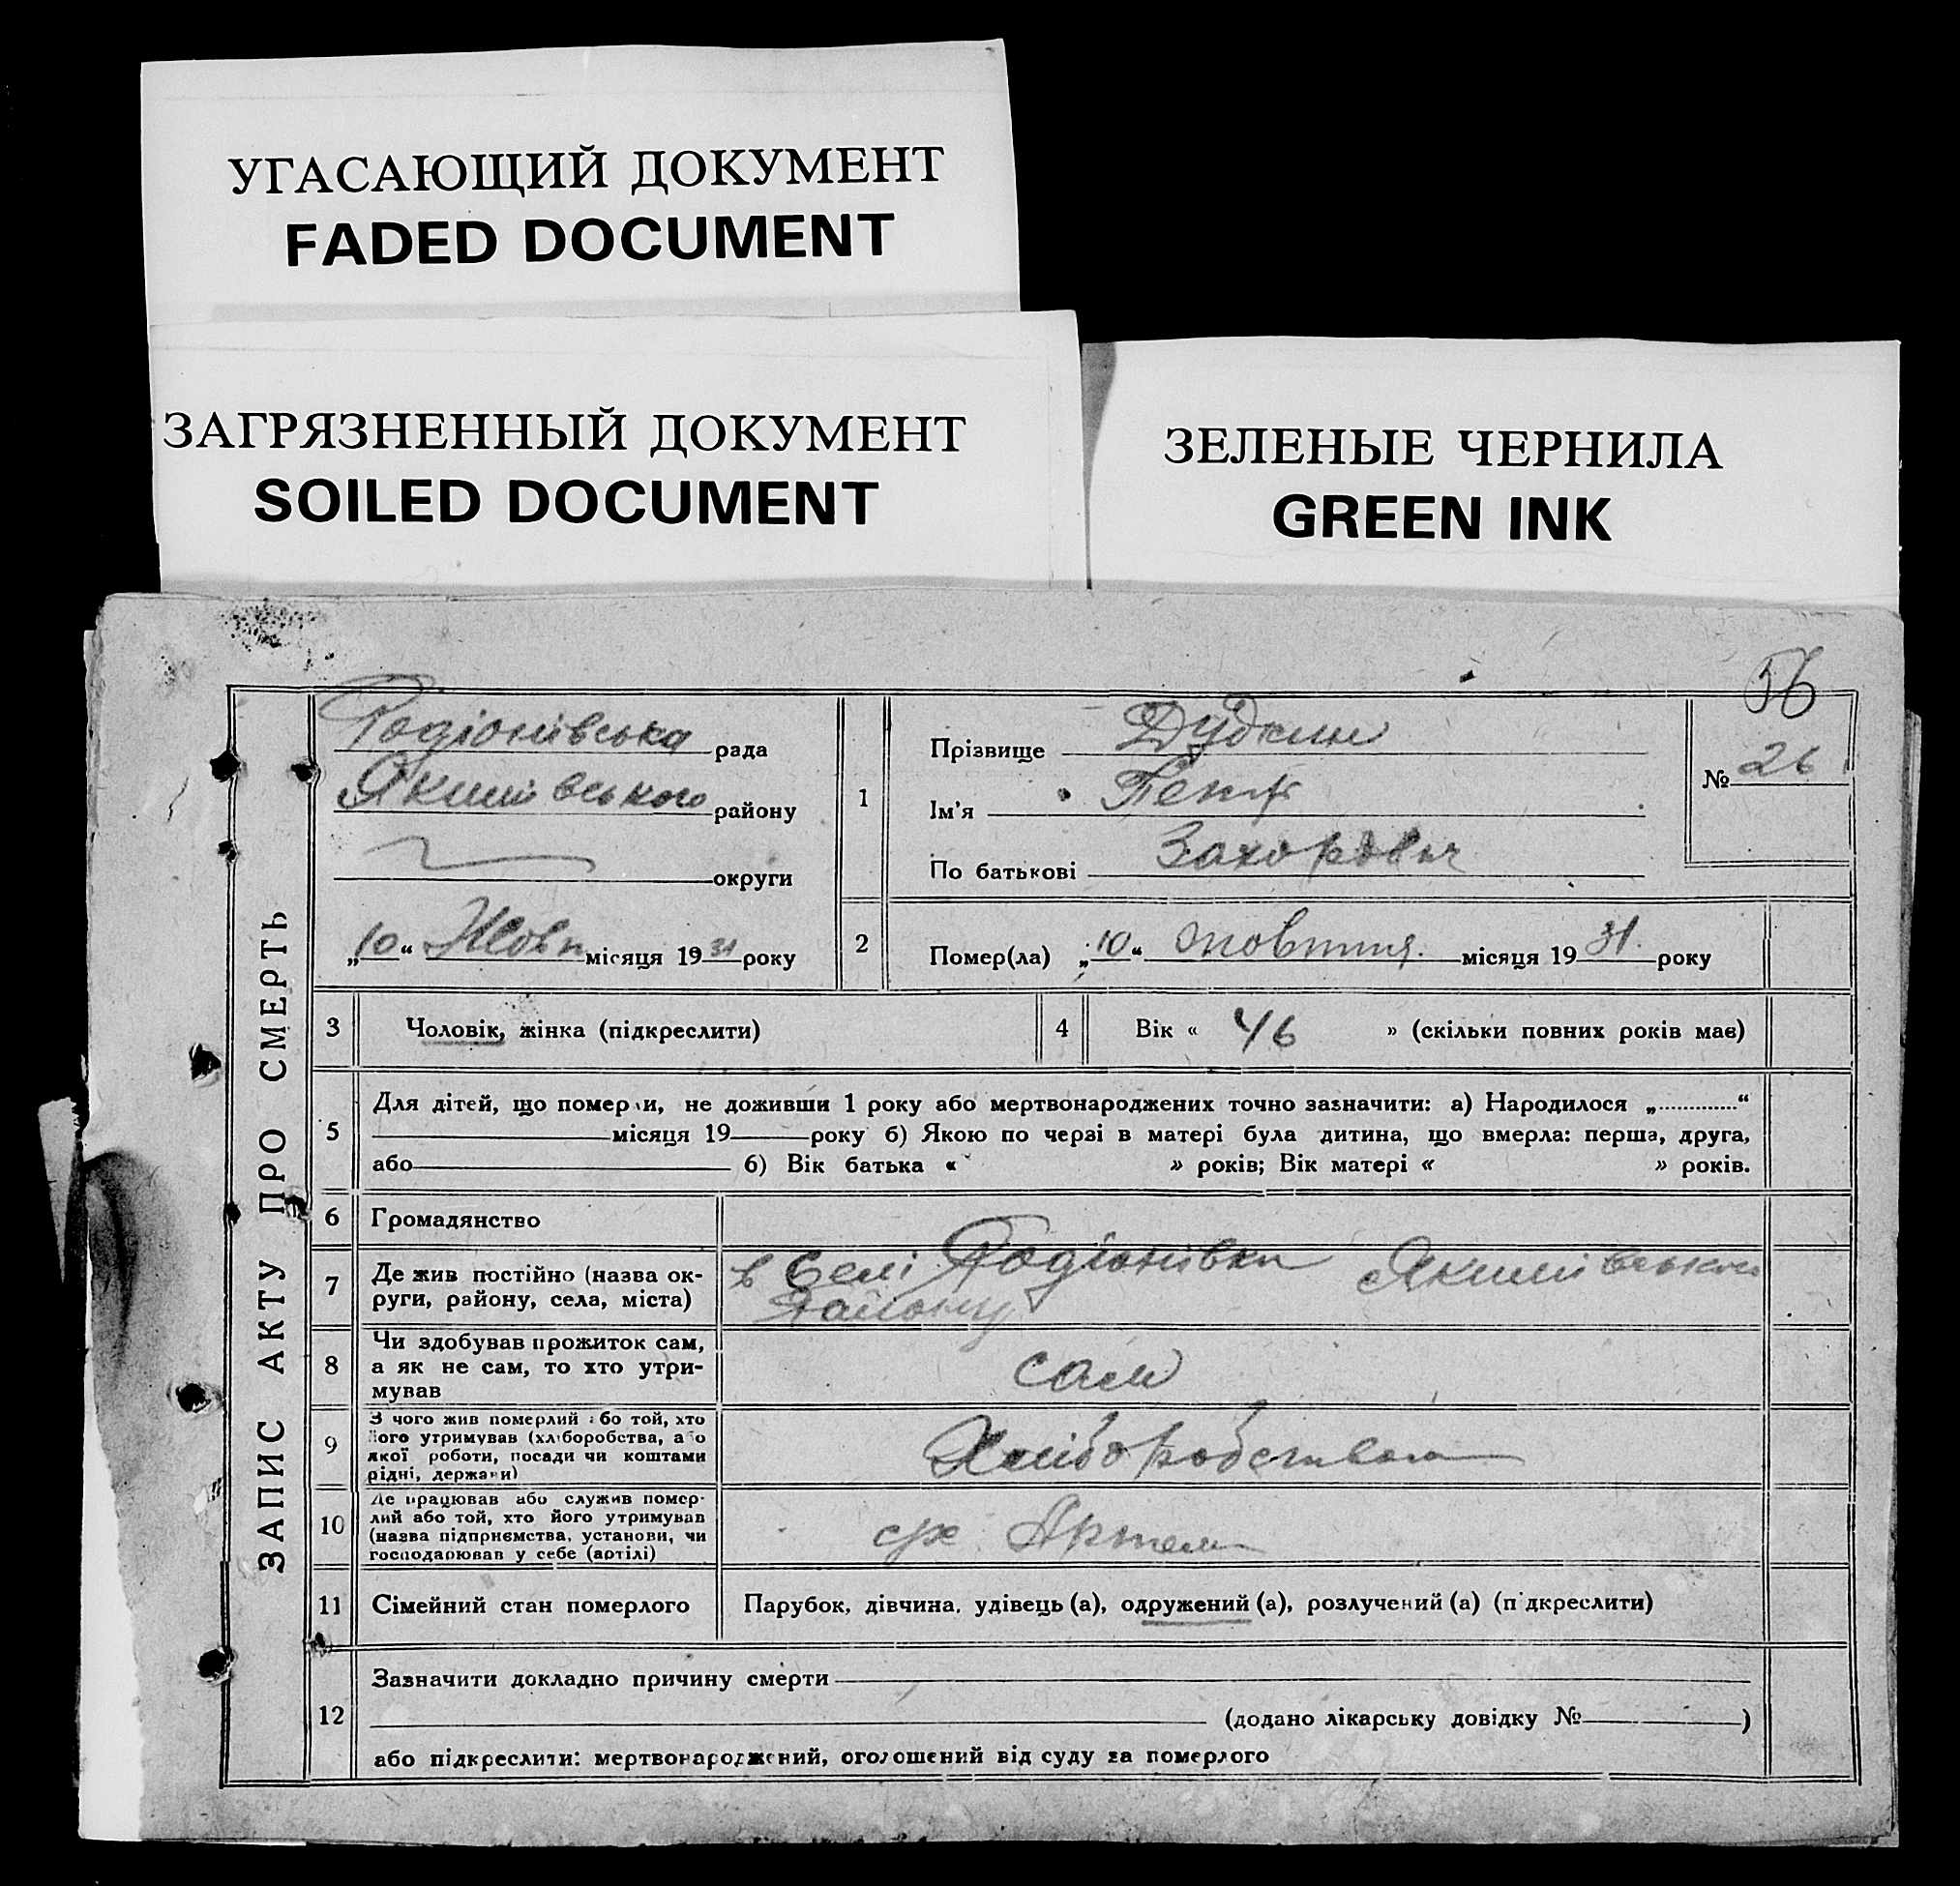 УГАСАЮЩИЙ ДОКУМЕНТ
FADED DOCUMENT
ЗАГРЯЗНЕННЫЙ ДОКУМЕНТ
SOILED DOCUMENT
ЗЕЛЕНЫЕ ЧЕРНИЛА
GREEN INK
56
ЗАПИС АКТУ ПРО СМЕРТЬ
Родіонівська рада
Якимівського району
округи
„10“ Жовт місяця 1931 року
1
Прізвище Дудкин
Ім’я Петр
По батькові Захорович
№ 26
2
Помер(ла) „10“ жовтня. місяця 1931. року
3 Чоловік, жінка (підкреслити)
4 Вік « 46 » (скільки повних років має)
5
Для дітей, що померли, не доживши 1 року або мертвонароджених точно зазначити: а) Народилося „.............“
місяця 19 року б) Якою по черзі в матері була дитина, що вмерла: перша, друга,
або б) Вік батька « » років; Вік матері « » років.
6 Громадянство
7 Де жив постійно (назва ок-
руги, району, села, міста)
в Селі Родіонівки Якимівського
Району
8 Чи здобував прожиток сам,
а як не сам, то хто утри-
мував
сам
9 З чого жив померлий або той, хто
його утримував (хліборобства, або
якої роботи, посади чи коштами
рідні, держави)
Хліборобством
10 Де працював або служив помер-
лий або той, хто його утримував
(назва підприємства, установи, чи
господарював у себе (артілі)
с/х Артели
11 Сімейний стан померлого
Парубок, дівчина, удівець (а), одружений (а), розлучений (а) (підкреслити)
12
Зазначити докладно причину смерти
(додано лікарську довідку № )
або підкреслити: мертвонароджений, оголошений від суду за померлого